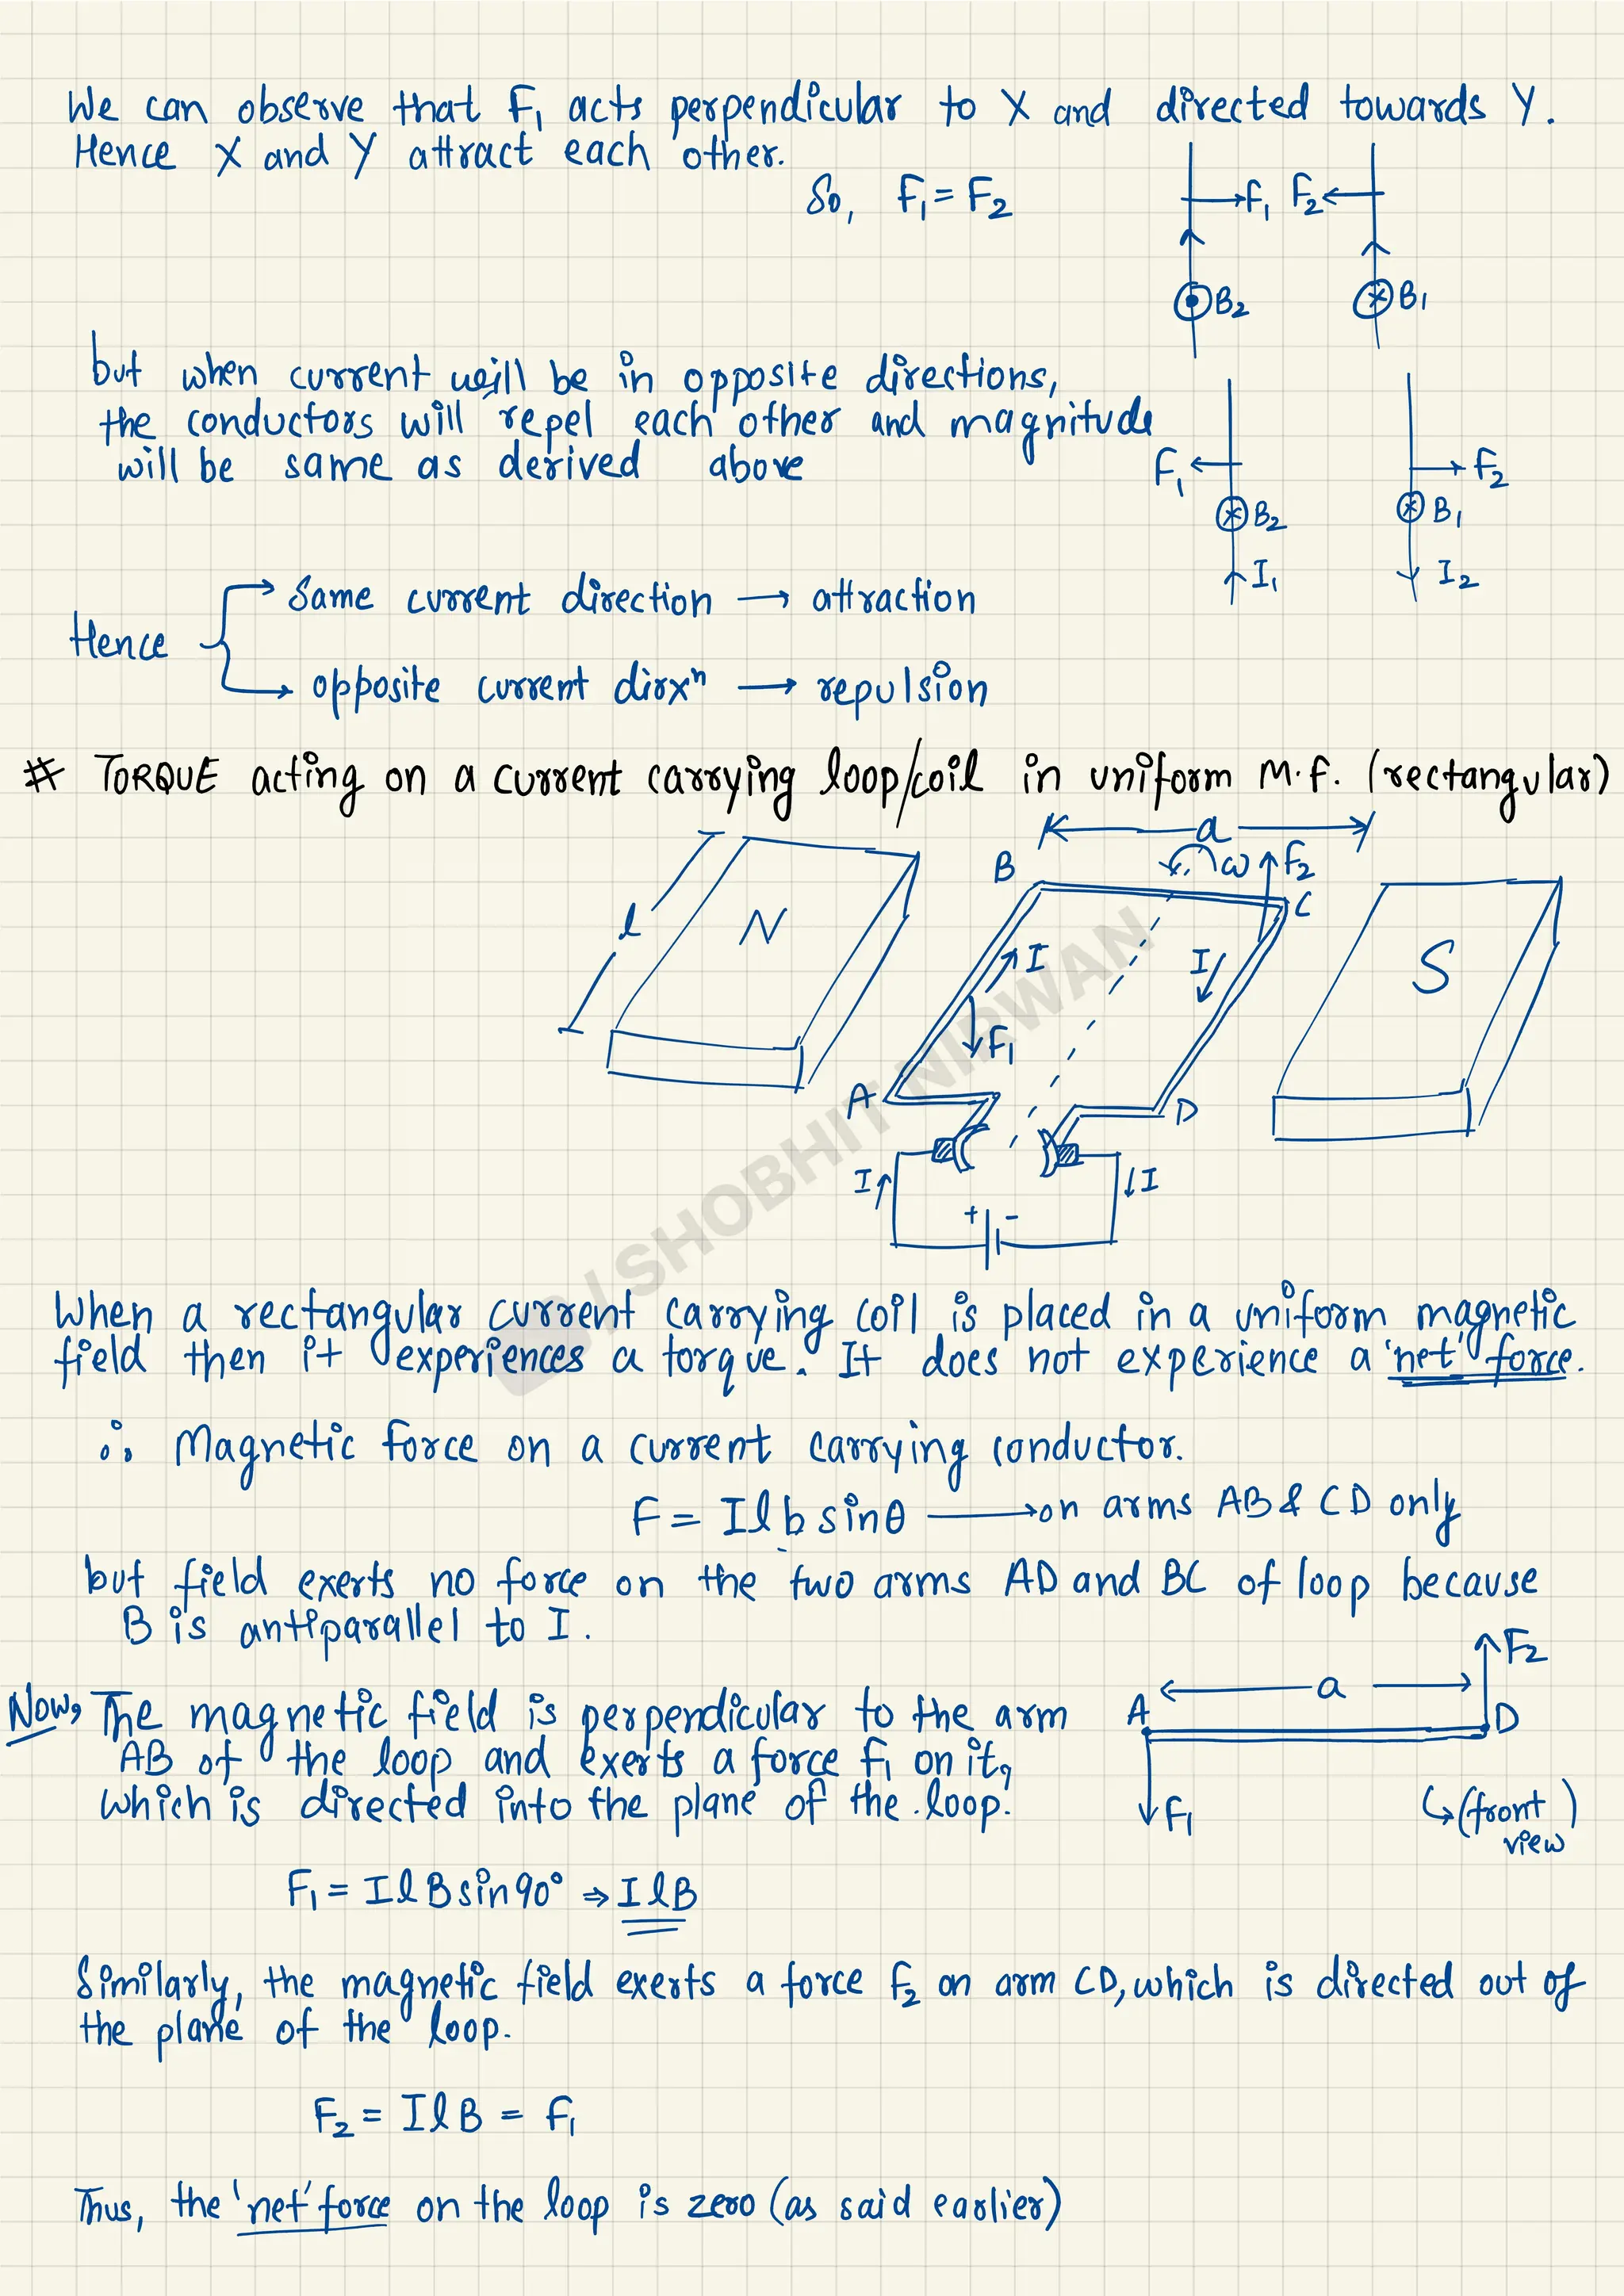 We can observe that F₁ acts perpendicular to X and directed towards Y.
Hence X and Y attract each other.
So, F₁ = F₂
F₁ F₂
B₂ B₁
but when current will be in opposite directions,
the conductors will repel each other and magnitude
will be same as derived above
F₁ F₂
B₂ B₁
I₁ I₂
Hence
Same current direction → attraction
opposite current dirxⁿ → repulsion
# TORQUE acting on a current carrying loop/coil in uniform M.F. (rectangular)
a
B ω F₂
C
l N I I S
F₁
A D
I I
+ -
/ SHOBHIT NIRWAN
When a rectangular current carrying coil is placed in a uniform magnetic
field then it experiences a torque. It does not experience a 'net' force.
∴ Magnetic force on a current carrying conductor.
F = Ilb sinθ → on arms AB & CD only
but field exerts no force on the two arms AD and BC of loop because
B is antiparallel to I.
F₂
a
A D
F₁
(front view)
Now, The magnetic field is perpendicular to the arm
AB of the loop and exerts a force F₁ on it,
which is directed into the plane of the loop.
F₁ = IlB sin90° ⇒ IlB
Similarly, the magnetic field exerts a force F₂ on arm CD, which is directed out of
the plane of the loop.
F₂ = IlB = F₁
Thus, the 'net' force on the loop is zero (as said earlier)